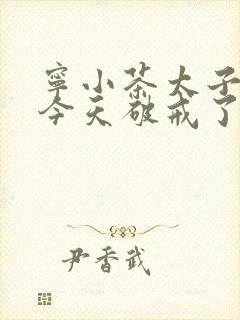 寧小茶太子
今天破戒了
尹香武